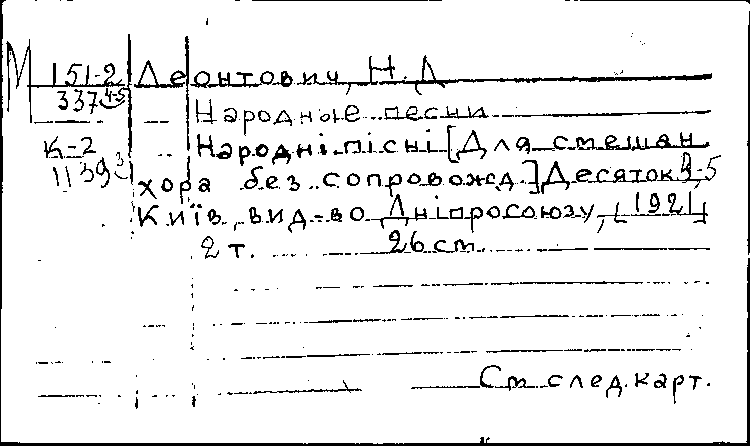 М 151-2 Леонтович, Н. Д
337 4-5
Народные песни
К-2 Народні пісні [Для смешан.
1139 3
хора без сопровожд.] Десяток 4,5
Київ, вид-во Дніпросоюзу, [1921]
2 т. 26 cm
См след. карт.